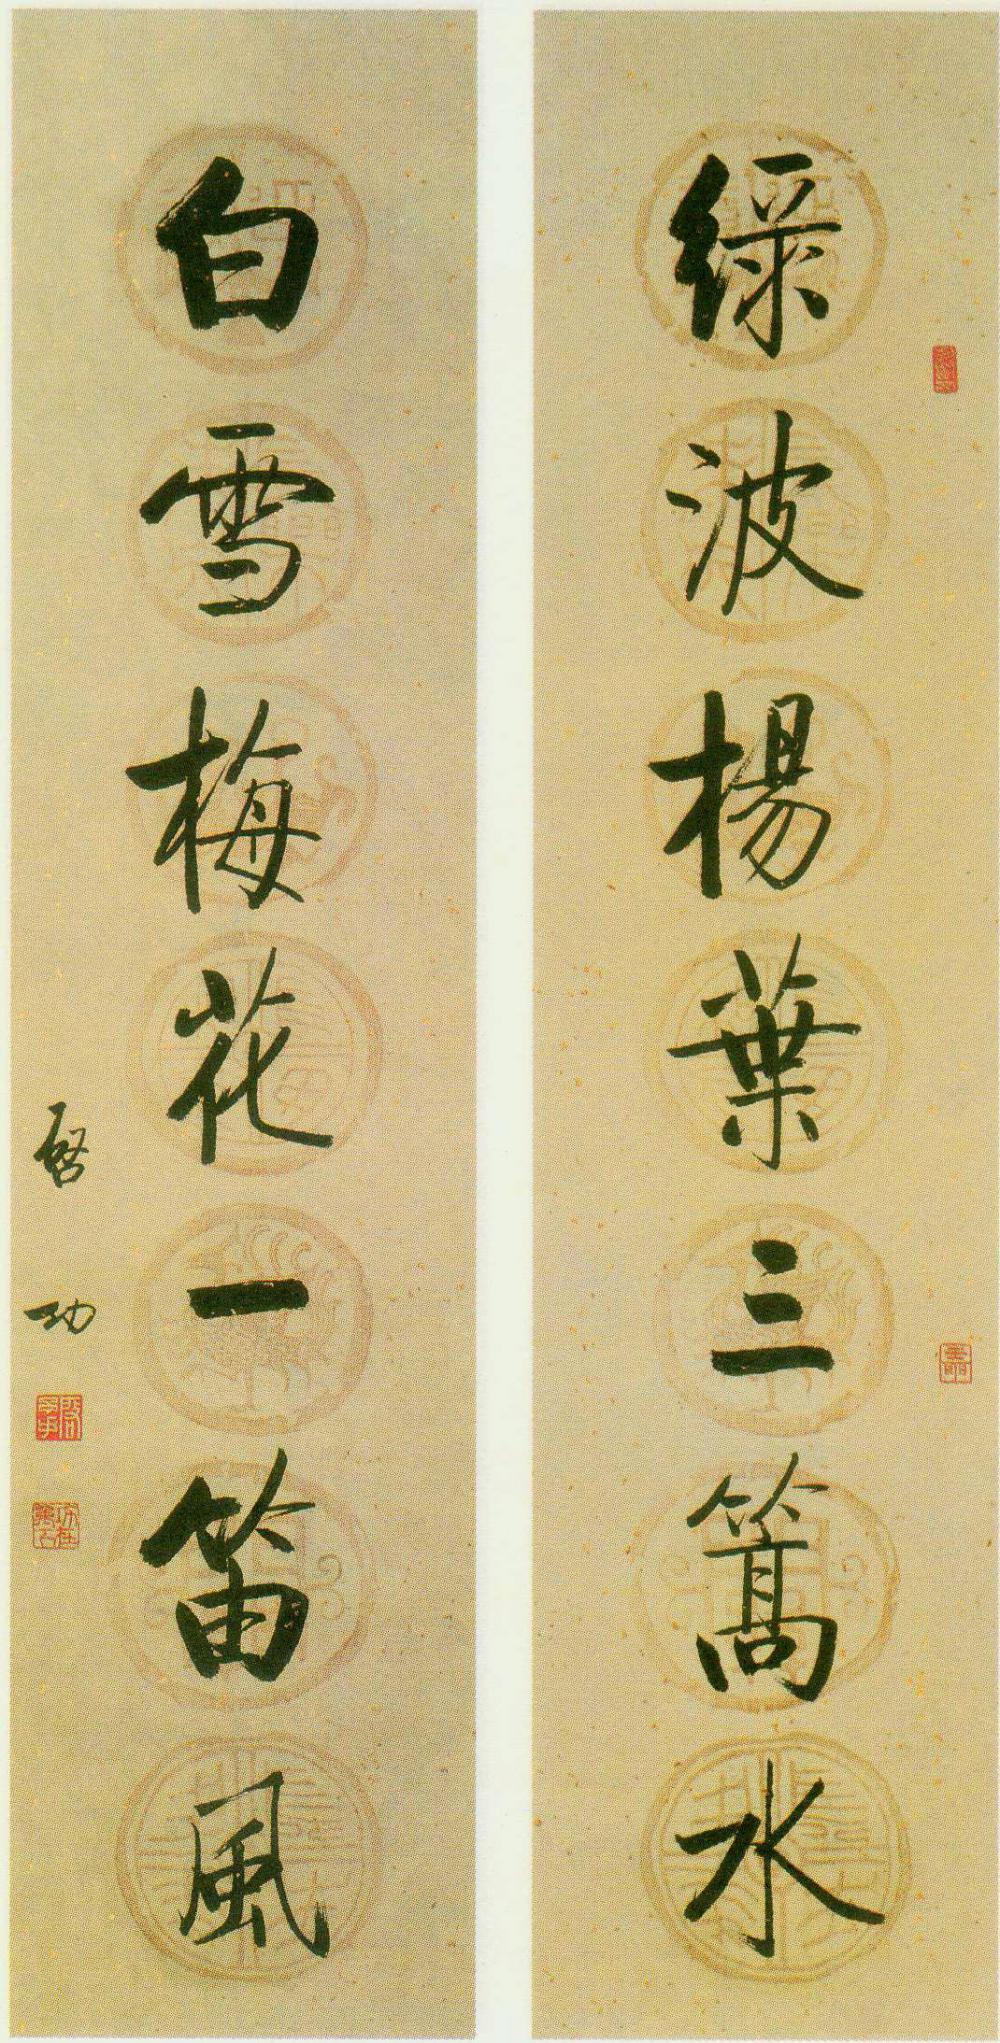 緑波楊葉三篙水
白雪梅花一笛風
啓功